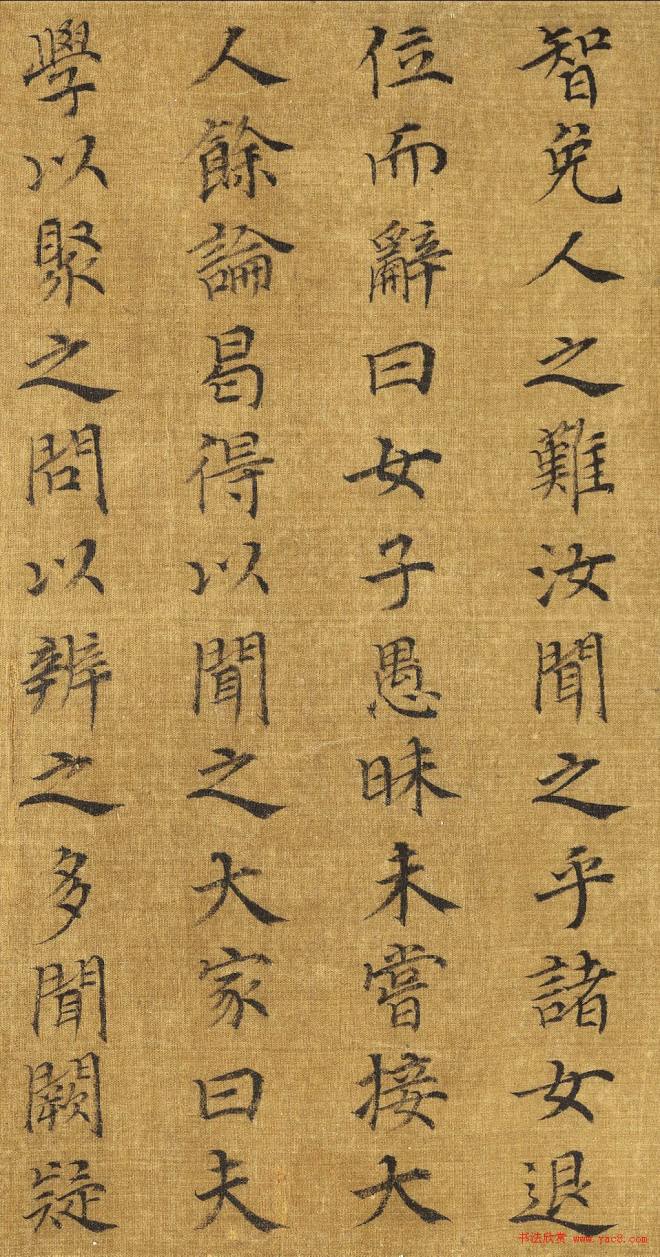 智免人之難汝聞之乎諸女退
位而辭曰女子愚昧未嘗接大
人餘論曷得以聞之大家曰夫
學以聚之問以辨之多聞闕疑
书法欣赏 www.yac8.com